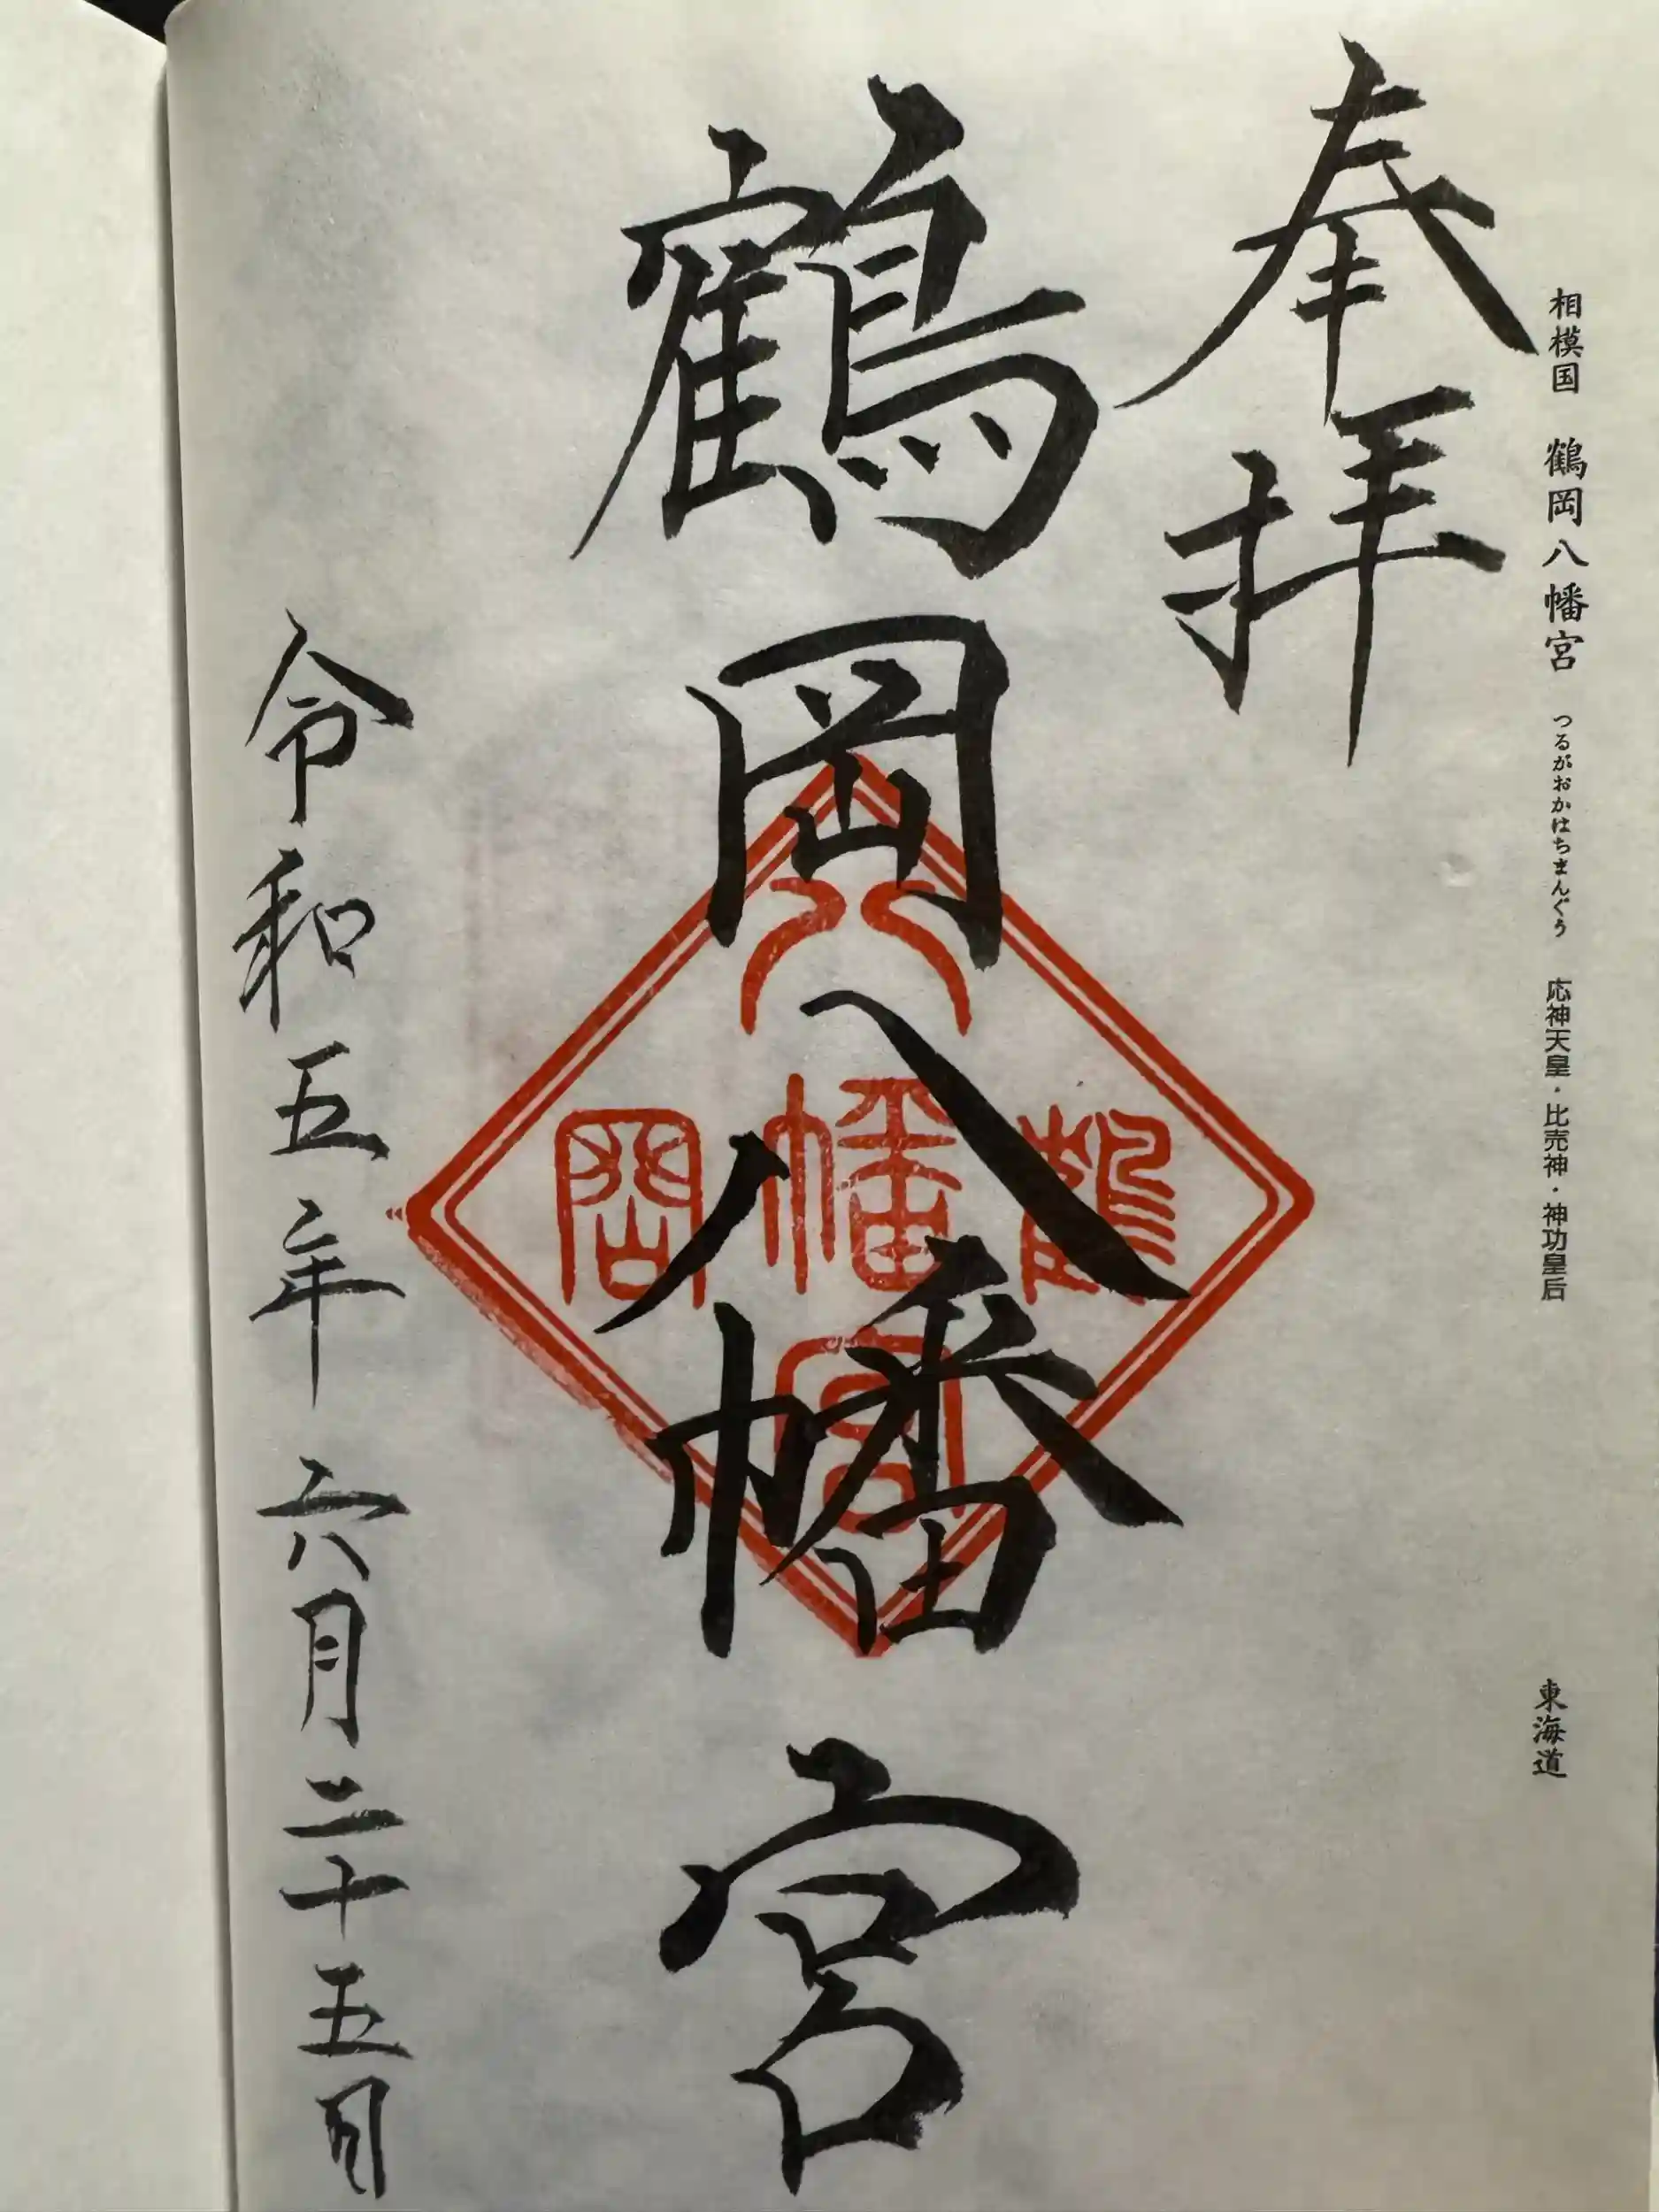 相模国 鶴岡八幡宮 つるがおかはちまんぐう 応神天皇・比売神・神功皇后 東海道
奉拝
鶴岡八幡宮
八
鶴
幡
岡
宮
令和五年六月二十五日